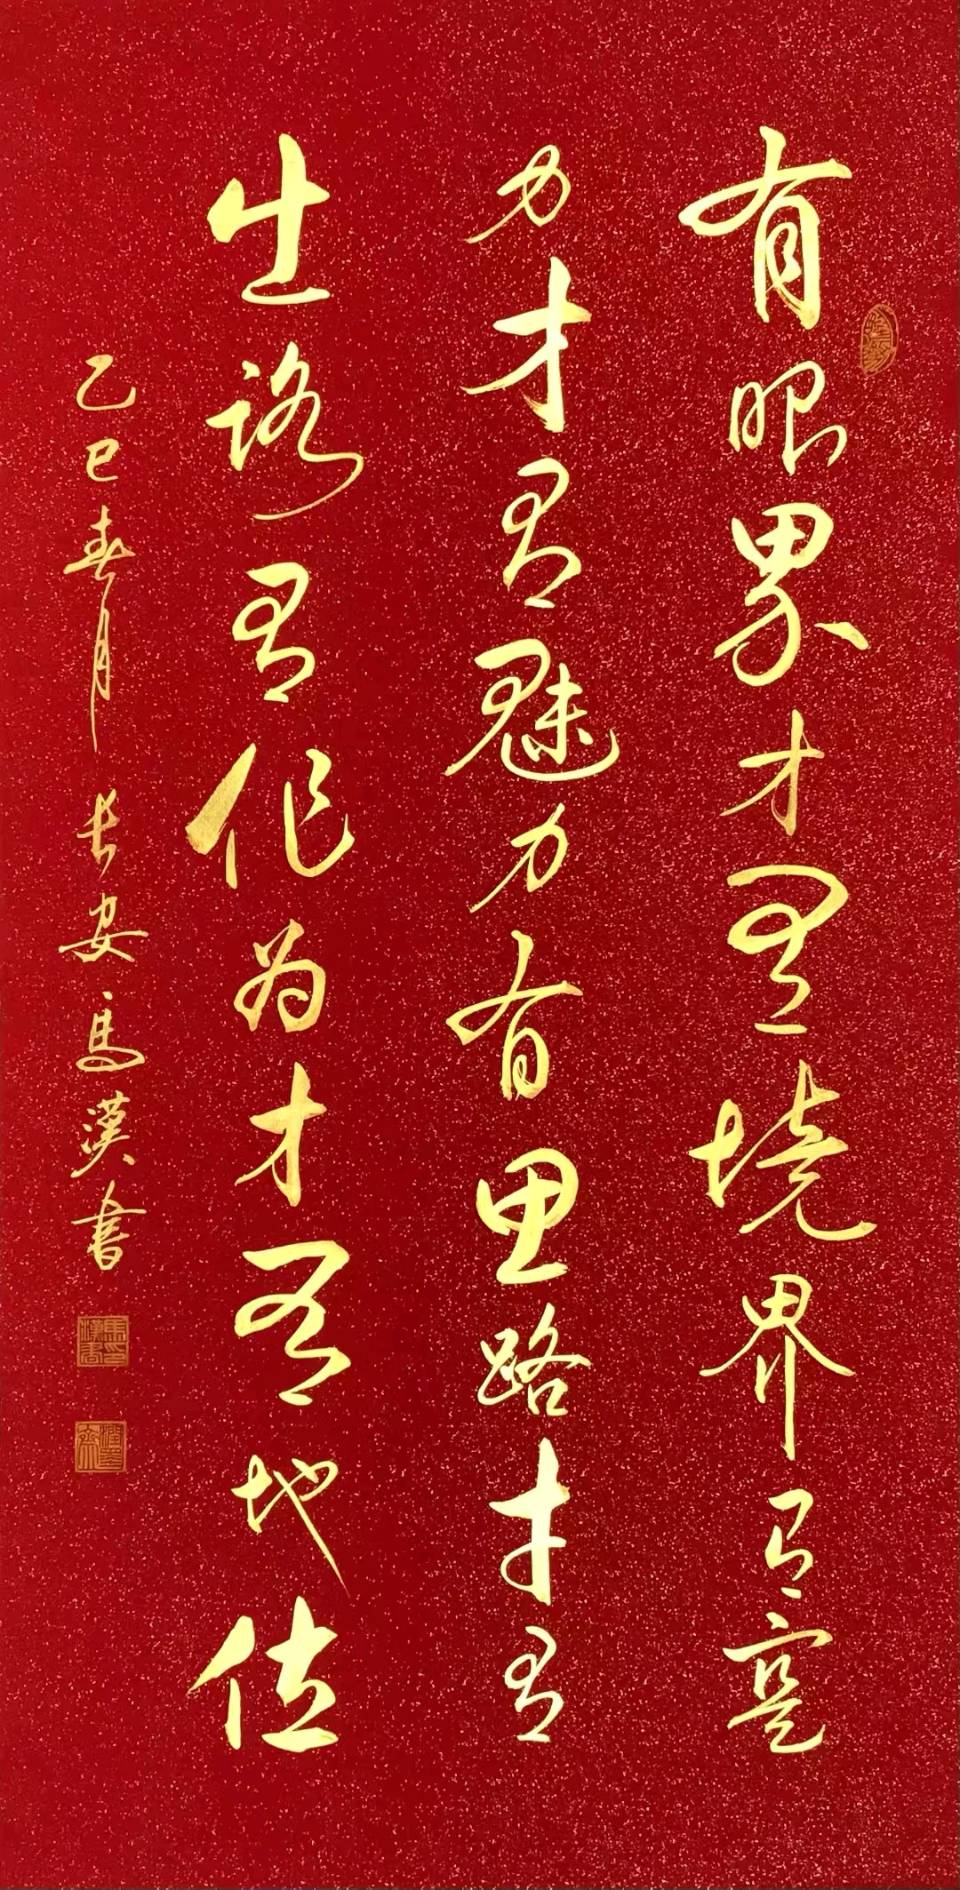 有眼界才有境界有寔
力才有魅力有思路才有
出路有作为才有地位
乙巳春月长安馬漢書